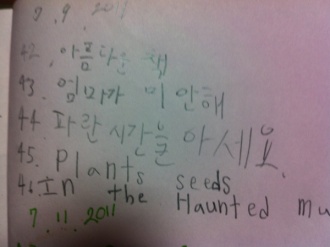 7. 9. 2011
42. 아름다운 책
43. 엄마가 미안해
44. 파란 시간을 아세요.
45. Plants seeds
46. In the Haunted
7. 11. 2011